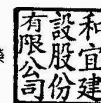 和宜建
設股份
有限公司